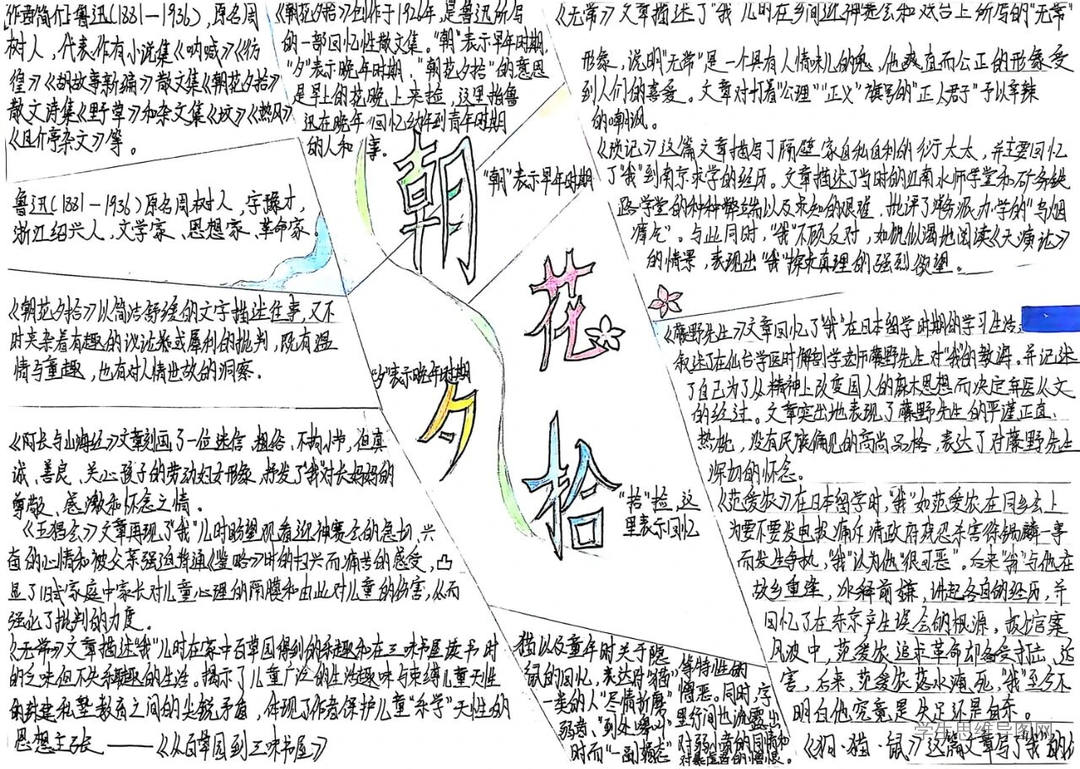 作者简介：鲁迅(1881－1936)，原名周
树人，代表作有小说集《呐喊》《彷
徨》《故事新编》散文集《朝花夕拾》
散文诗集《野草》和杂文集《坟》《热风》
《且介亭杂文》等。
《朝花夕拾》创作于1926年，是鲁迅所写
的一部回忆性散文集。"朝"表示早年时期，
"夕"表示晚年时期，"朝花夕拾"的意思
是早上的花晚上来捡，这里指鲁
迅在晚年回忆幼年到青年时期
的人和事。
《无常》文章描述了"我"儿时在乡间迎神赛会和戏台上所写的"无常"
形象，说明"无常"是一个具有人情味儿的鬼，他爽直而公正的形象受
到人们的喜爱。文章对打着"公理""正义"旗号的"正人君子"予以辛辣
的嘲讽。
《琐记》这篇文章描写了隔壁家自私自利的衍太太，并主要回忆
了"我"到南京求学的经历。文章描述了当时的江南水师学堂和矿务铁
路学堂的种种弊端以及求知的艰难，批评了洋务派办学的"乌烟
瘴气"。与此同时，"我"不顾反对，如饥似渴地阅读《天演论》
的情景，表现出"我"探求真理的强烈欲望。
鲁迅(1881－1936)原名周树人，字豫才，
浙江绍兴人，文学家、思想家、革命家
朝
"朝"表示早年时期
花
《朝花夕拾》以简洁舒缓的文字描述往事，又不
时夹杂着有趣的议论或犀利的批判，既有温
情与童趣，也有对人情世故的洞察。
"夕"表示晚年时期
夕
拾
"拾"捡，这
里表示回忆
《藤野先生》文章回忆了"我"在日本留学时期的学习生活
叙述了在仙台学医时解剖学老师藤野先生对"我"的教诲。并记述
了自己为了从精神上改变国人的麻木思想而决定弃医从文
的经过。文章突出地表现了藤野先生的严谨正直、
热忱，没有民族偏见的高尚品格，表达了对藤野先生
深切的怀念。
《阿长与山海经》文章刻画了一位迷信、粗俗、不拘小节，但真
诚、善良、关心孩子的劳动妇女形象，抒发了"我"对长妈妈的
尊敬、感激和怀念之情。
《五猖会》文章再现了"我"儿时盼望观看迎神赛会的急切、兴
奋的心情和被父亲强迫背诵《鉴略》时的扫兴而痛苦的感受，凸
显了旧式家庭中家长对儿童心理的隔膜和由此对儿童的伤害，从而
强化了批判的力度。
《无常》文章描述"我"儿时在家中百草园得到的乐趣和在三味书屋读书时
的乏味但不失乐趣的生活。揭示了儿童广泛的生活趣味与束缚儿童天性
的封建私塾教育之间的尖锐矛盾，体现了作者保护儿童"乐学"天性的
思想主张——《从百草园到三味书屋》
《范爱农》在日本留学时，"我"如范爱农在同乡会上
为要不要发电报痛斥清政府残忍杀害徐锡麟一事
而发生争执，"我"认为他"很可恶"。后来"我"与他在
故乡重逢，冰释前嫌，讲起各自的经历，并
回忆了在东京产生误会的根源，
风波中，范爱农追求革命却备受打击、迫
害，后来，范爱农落水淹死，"我"至今不
明白他究竟是失足还是自杀。
《狗·猫·鼠》这篇文章写了"我"的
猫以及童年时关于隐
鼠的回忆，表达对"猫"
一类的人"尽情折磨"
弱者、"到处嗥叫"
时而"一副媚态"
等特性的
憎恶，同时，字
里行间也流露出
对弱小者的同情和
对暴虐者的憎恨。
学生思维导图网